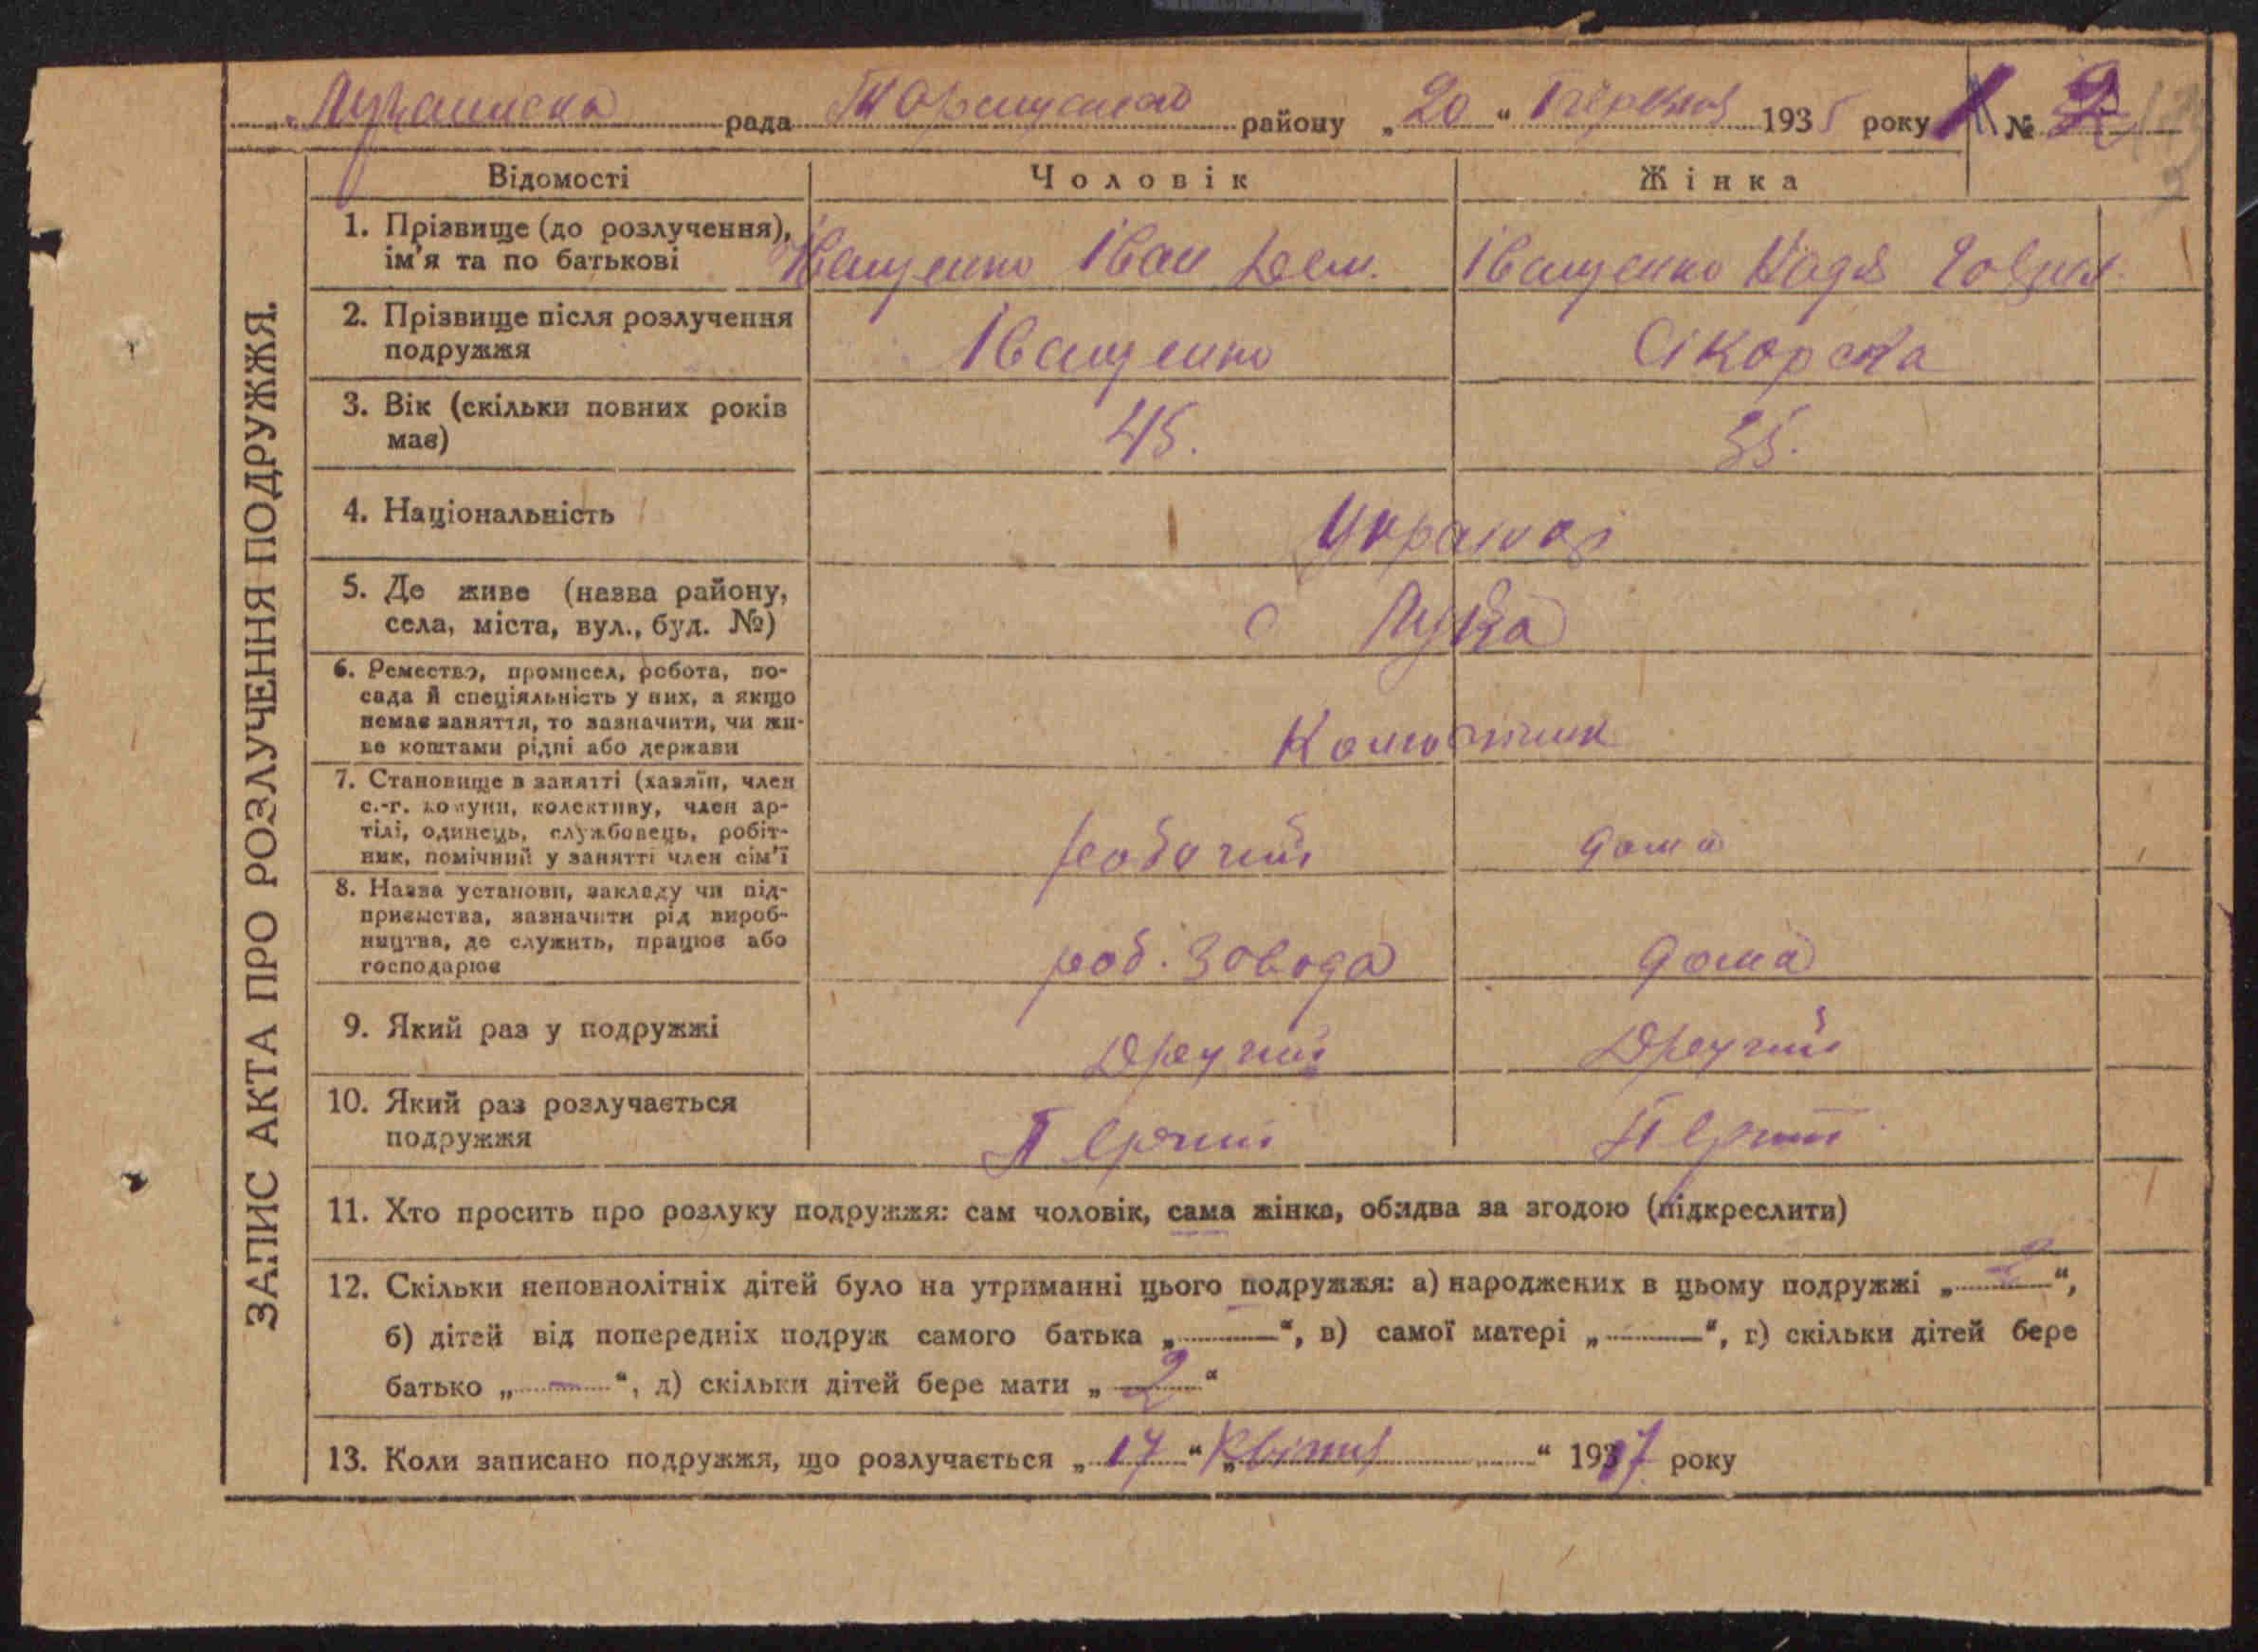 ЗАПИС АКТА ПРО РОЗЛУЧЕННЯ ПОДРУЖЖЯ.
рада району „20“ 1935 року № 2
Відомості Чоловік Жінка
1. Прізвище (до розлучення), ім'я та по батькові
Іващенко Іван Дем. Іващенко Надя
2. Прізвище після розлучення подружжя
Іващенко Сікорска
3. Вік (скільки повних років має)
45. 35.
4. Національність
5. Де живе (назва району, села, міста, вул., буд. №)
с Лука
6. Ремество, промисел, робота, посада й спеціяльність у них, а якщо немає заняття, то зазначити, чи живе коштами рідні або держави
7. Становище в занятті (хазяїн, член с.-г. комуни, колективу, член артілі, одинець, службовець, робітник, помічний у занятті член сім'ї
рабочий дома
8. Назва установи, закладу чи підприємства, зазначити рід виробництва, де служить, працює або господарює
роб. завода дома
9. Який раз у подружжі
Другий Другий
10. Який раз розлучається подружжя
11. Хто просить про розлуку подружжя: сам чоловік, сама жінка, обидва за згодою (підкреслити)
12. Скільки неповнолітніх дітей було на утриманні цього подружжя: а) народжених в цьому подружжі „2“,
б) дітей від попередніх подруж самого батька „—“, в) самої матері „—“, г) скільки дітей бере
батько „—“, д) скільки дітей бере мати „2“
13. Коли записано подружжя, що розлучається „17“ „Квітня“ 1917 року